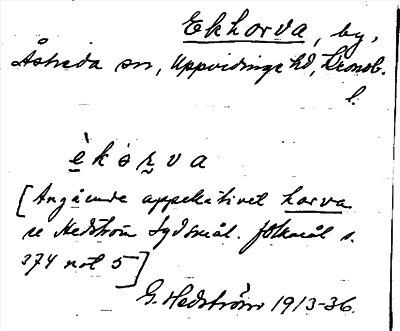 Ekhorva, by,
Åseda sn, Uppvidinge hd, Kronob.
l.
è̱ko̍r̠va
[Angående appellativet horva
se Hedström Sydsmål. folkmål s.
374 not 5]
G. Hedström 1913-36.